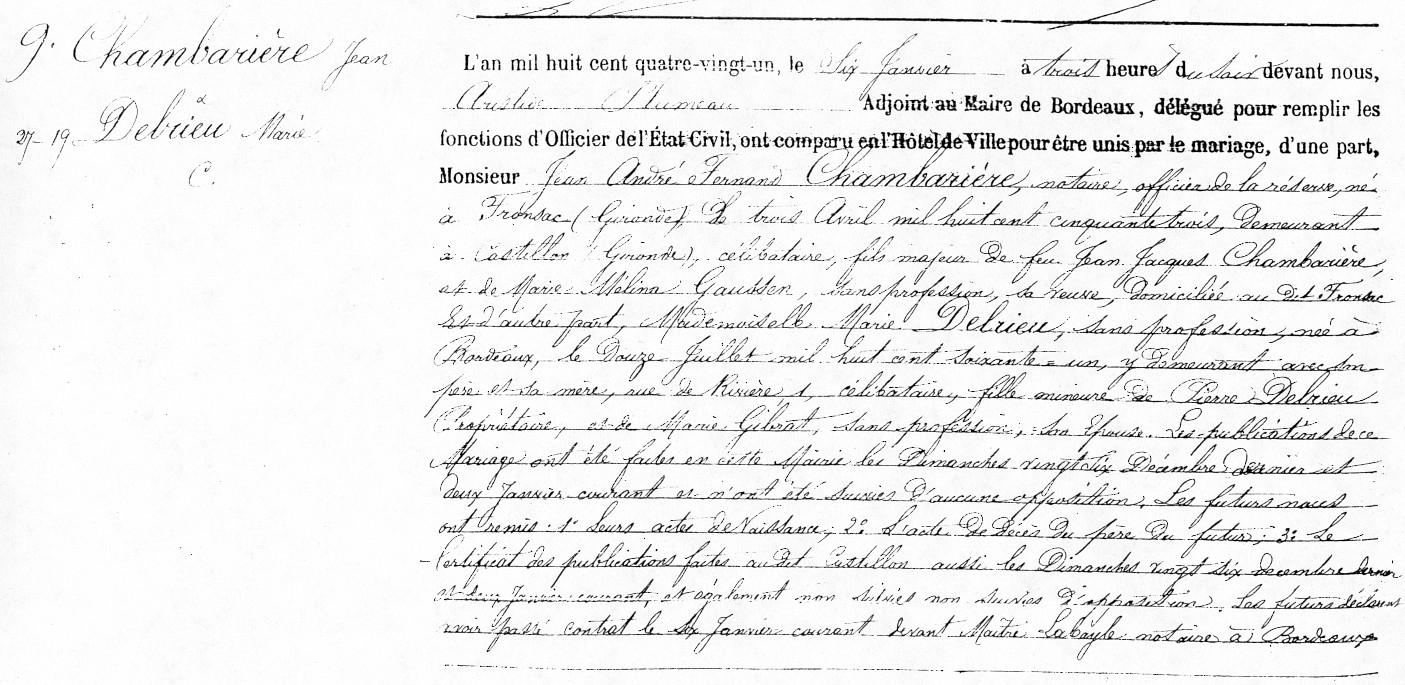 9. Chambarière Jean
&
27-19 Delrieu Marie
C.
L'an mil huit cent quatre-vingt-un, le Six Janvier à trois heures du soir devant nous,
Aristide Plumeau Adjoint au Maire de Bordeaux, délégué pour remplir les
fonctions d'Officier de l'État Civil, ont comparu en l'Hôtel de Ville pour être unis par le mariage, d'une part,
Monsieur Jean André Fernand Chambarière, notaire, officier de la réserve, né
à Fronsac (Gironde) le trois Avril mil huit cent cinquante trois, demeurant
à Castillon (Gironde), célibataire, fils majeur de feu Jean Jacques Chambarière,
et de Marie Mélina Gaussen, sans profession, sa veuve, domiciliée au dit Fronsac
Et d'autre part, Mademoiselle Marie Delrieu, sans profession, née à
Bordeaux, le Douze Juillet mil huit cent soixante-un, y demeurant avec son
père et sa mère, rue de Rivière 1, célibataire, fille mineure de Pierre Delrieu
Propriétaire, et de Marie Gibrat, sans profession, son Epouse. Les publications de ce
Mariage ont été faites en cette Mairie les Dimanches vingt six Décembre dernier et
deux Janvier courant et n'ont été suivies d'aucune opposition. Les futurs nous
ont remis: 1° Leurs actes de Naissance; 2° L'acte de décès du père du futur; 3° Le
Certificat des publications faites au dit Castillon aussi les Dimanches vingt six decembre dernier
et deux Janvier courant, et également non suivies non suivies d'opposition. Les futurs déclarent
avoir passé contrat le six Janvier courant devant Maître Labayle notaire à Bordeaux